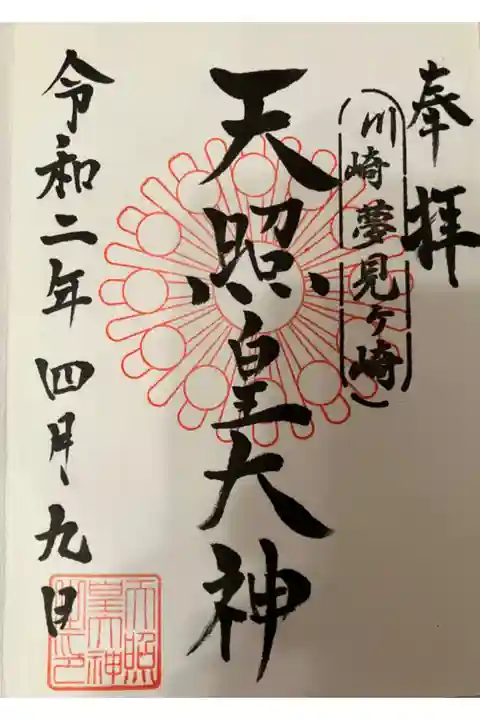 奉拝
(川崎夢見ヶ崎)
天照皇大神
令和二年四月九日
天照
皇大神
御印